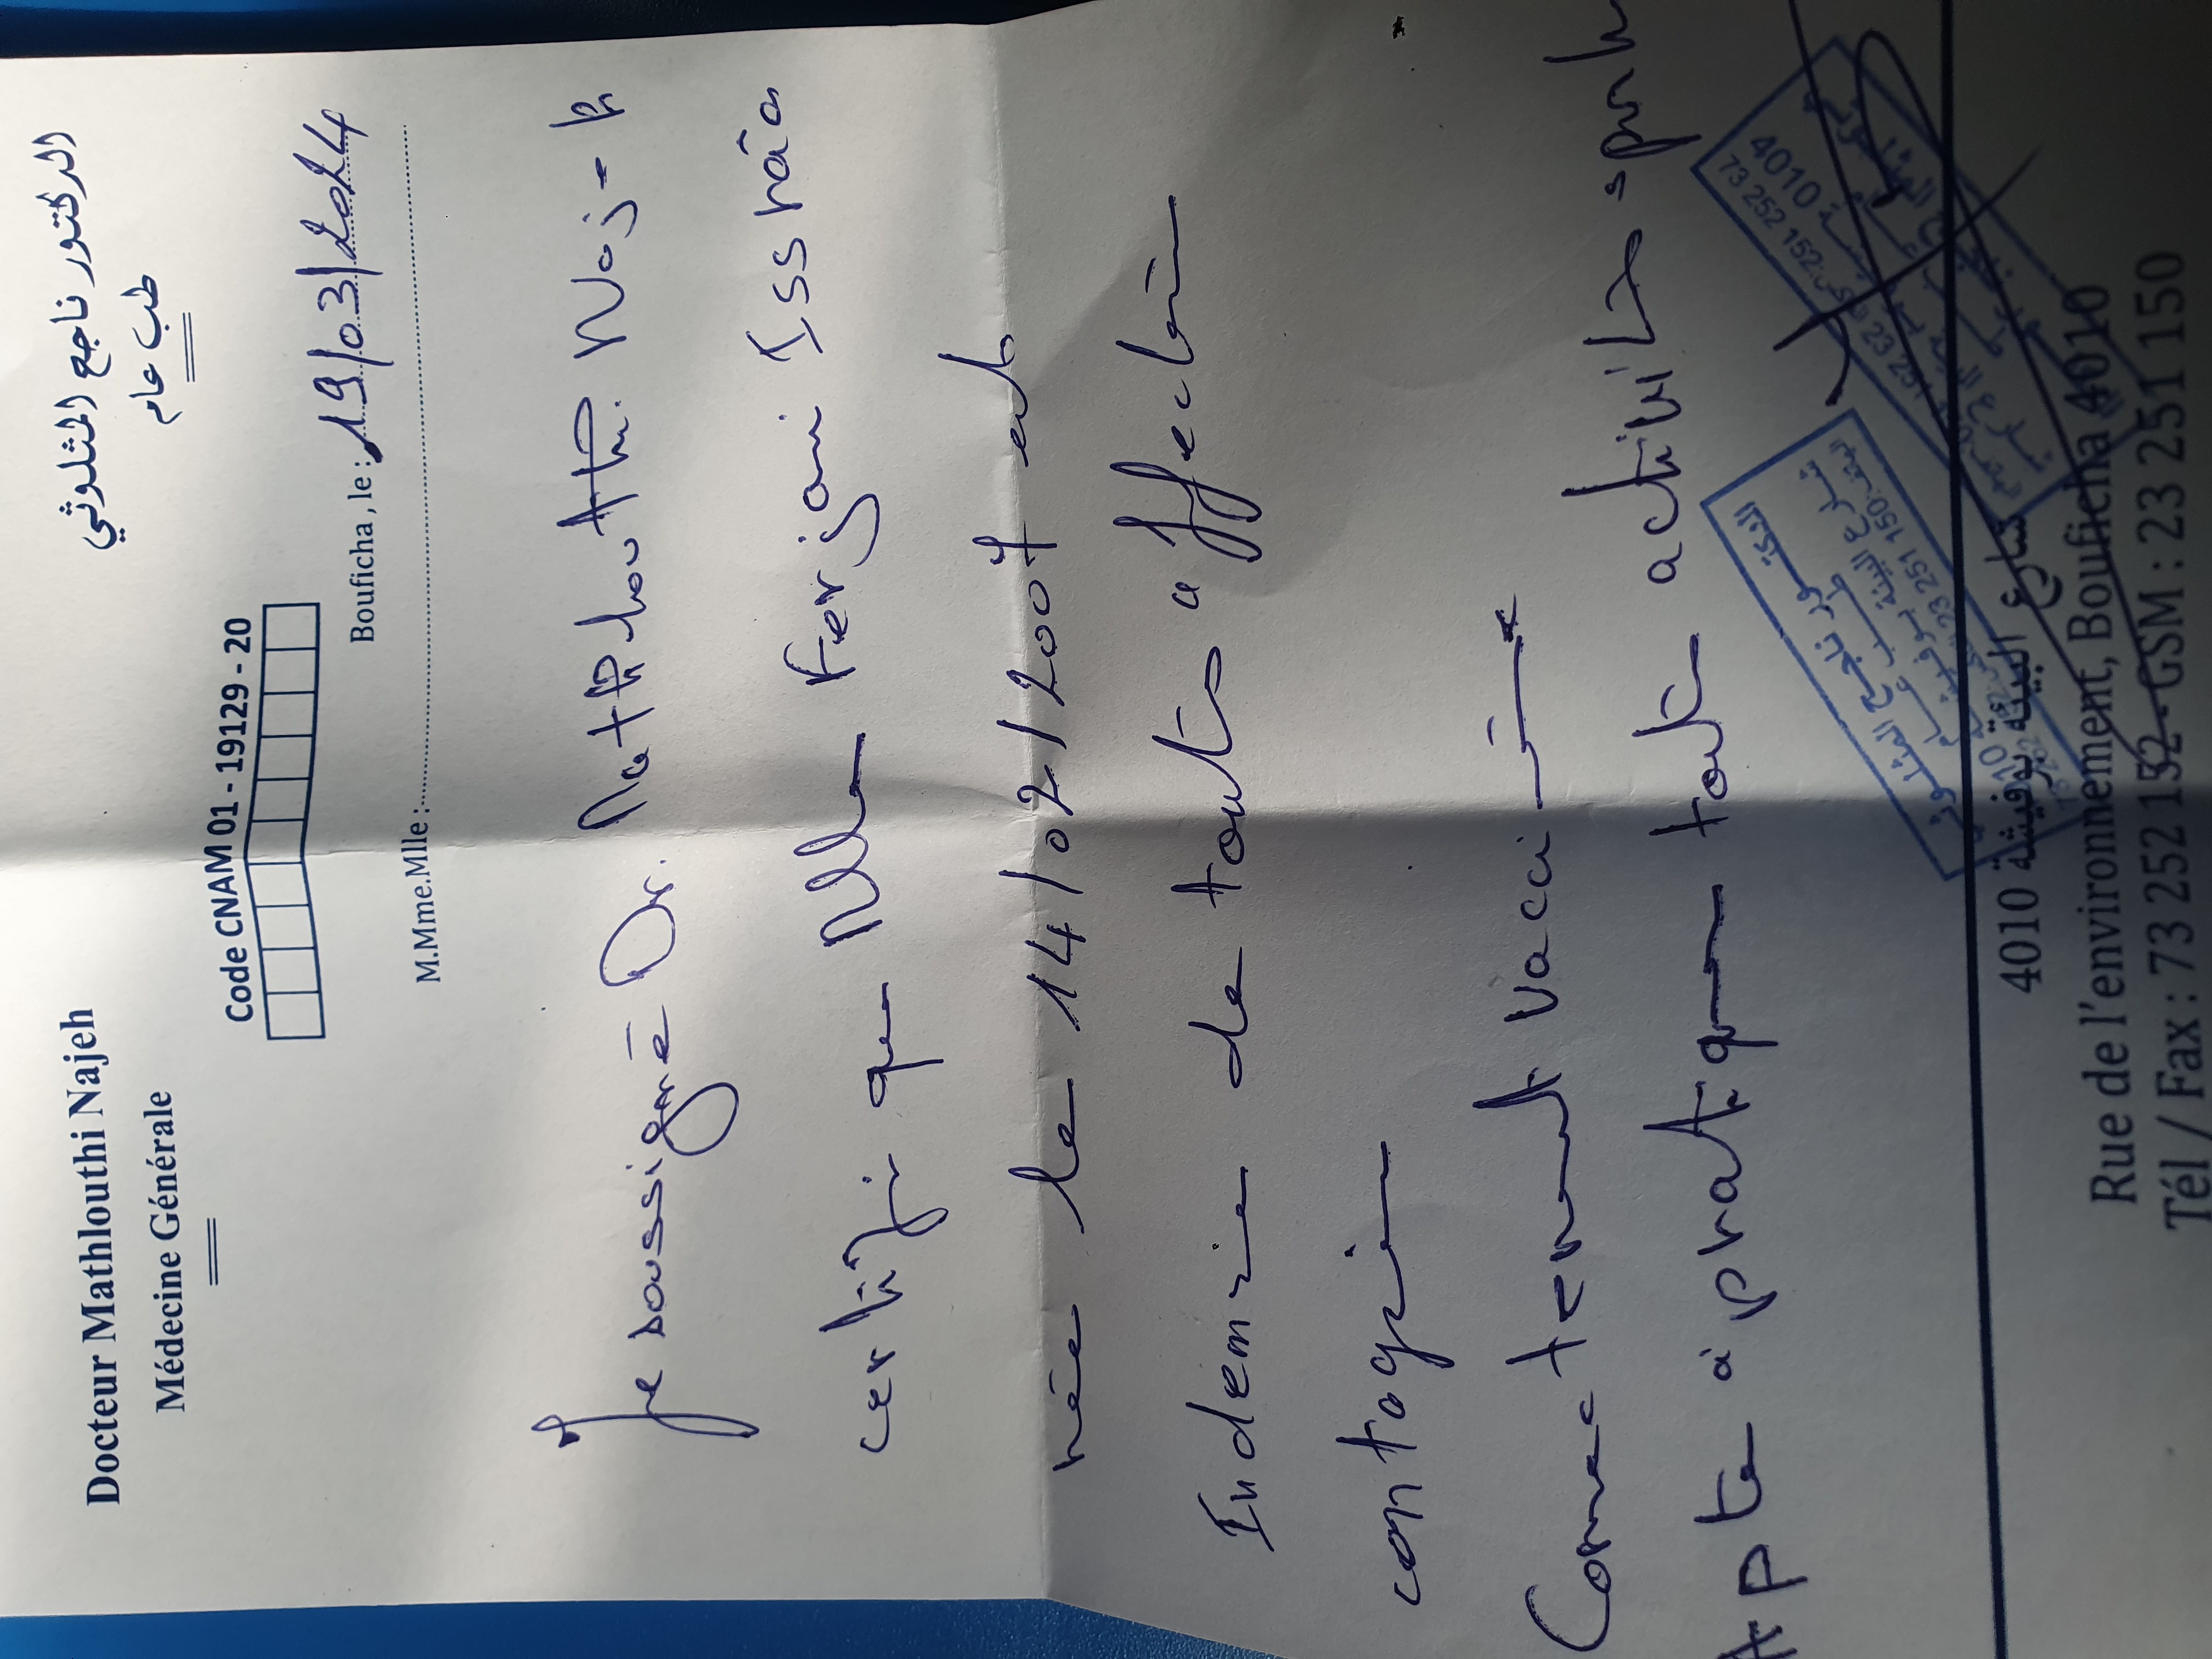 Docteur Mathlouthi Najeh
Médecine Générale
الدكتور ناجع المثلوثي
طب عام
Code CNAM 01 - 19129 - 20
Bouficha , le : 19/03/2024
M.Mme.Mlle :
Je soussigné Dr. Mathlouthi Naj-h
certifie que Mlle Ferjani Issrâa
née le 14/02/2007 est
Indemnie de toute affection
contagieuse
Correctement vacciné
Apte à pratiquer toute activité sportive
شارع البيئة بوفيشة 4010
Rue de l'environnement, Bouficha 4010
Tél / Fax : 73 252 152 - GSM : 23 251 150